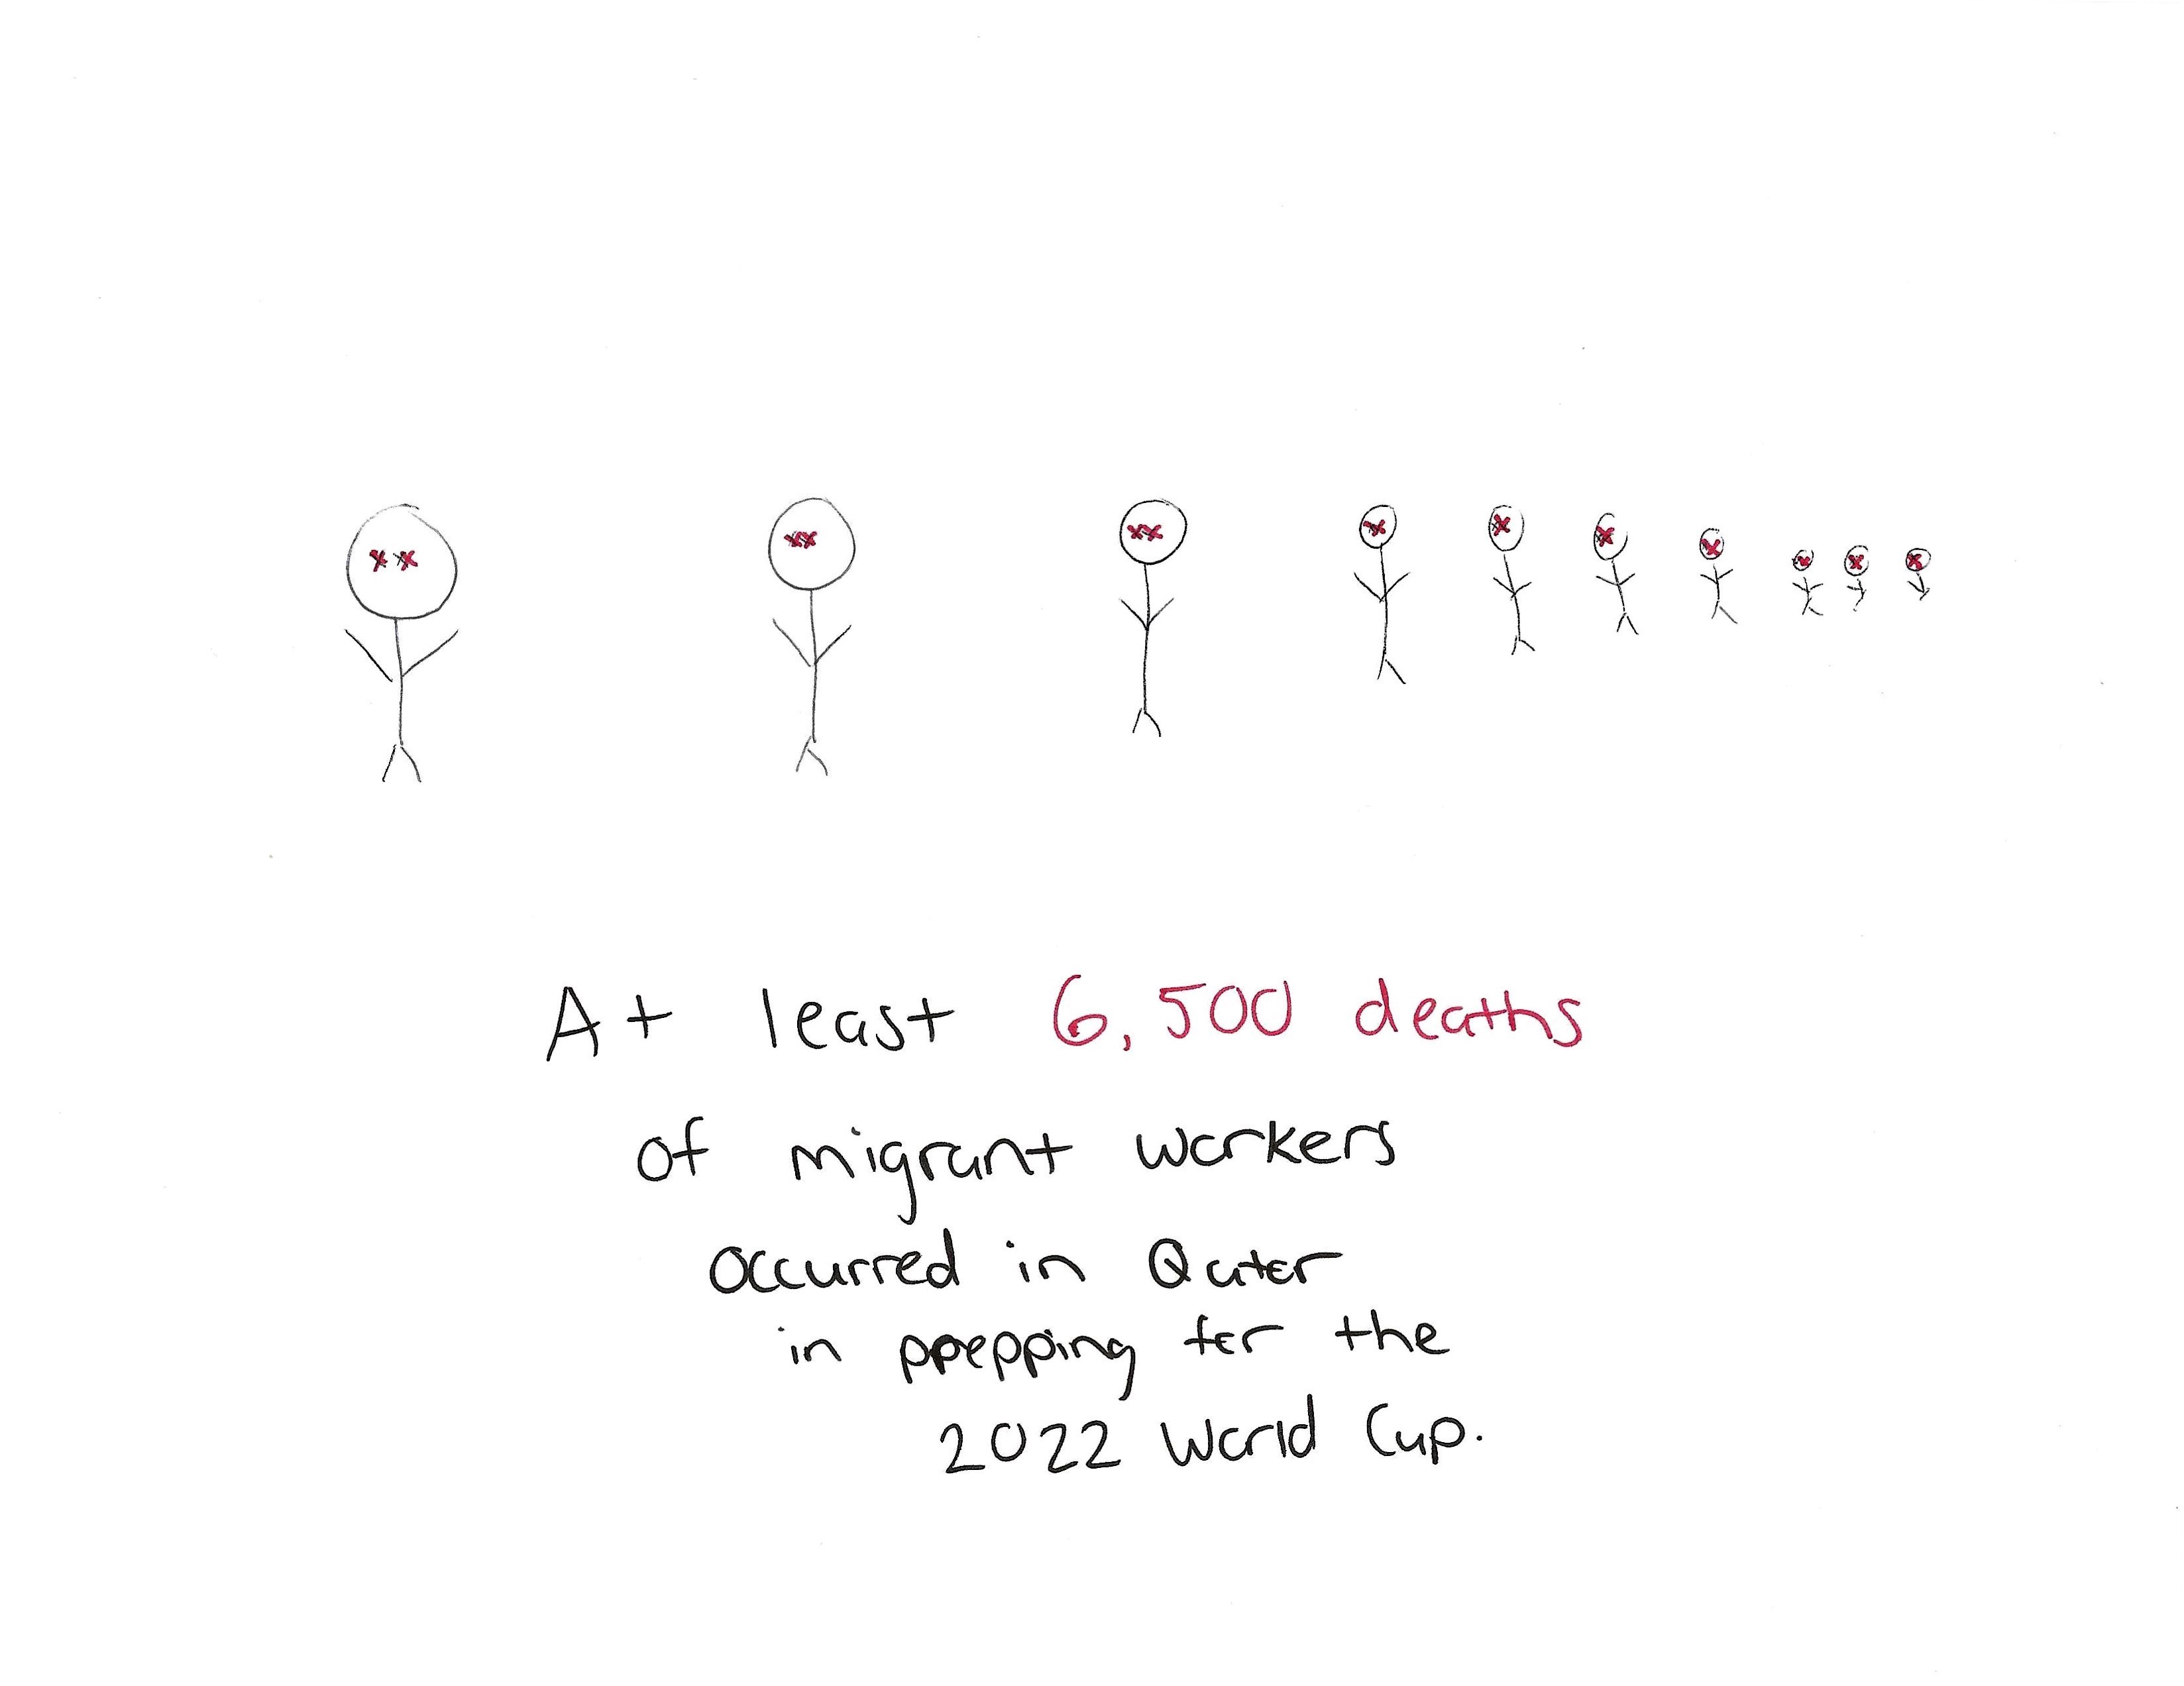 At least 6,500 deaths
of migrant workers
occurred in Qater
in prepping for the
2022 World Cup.